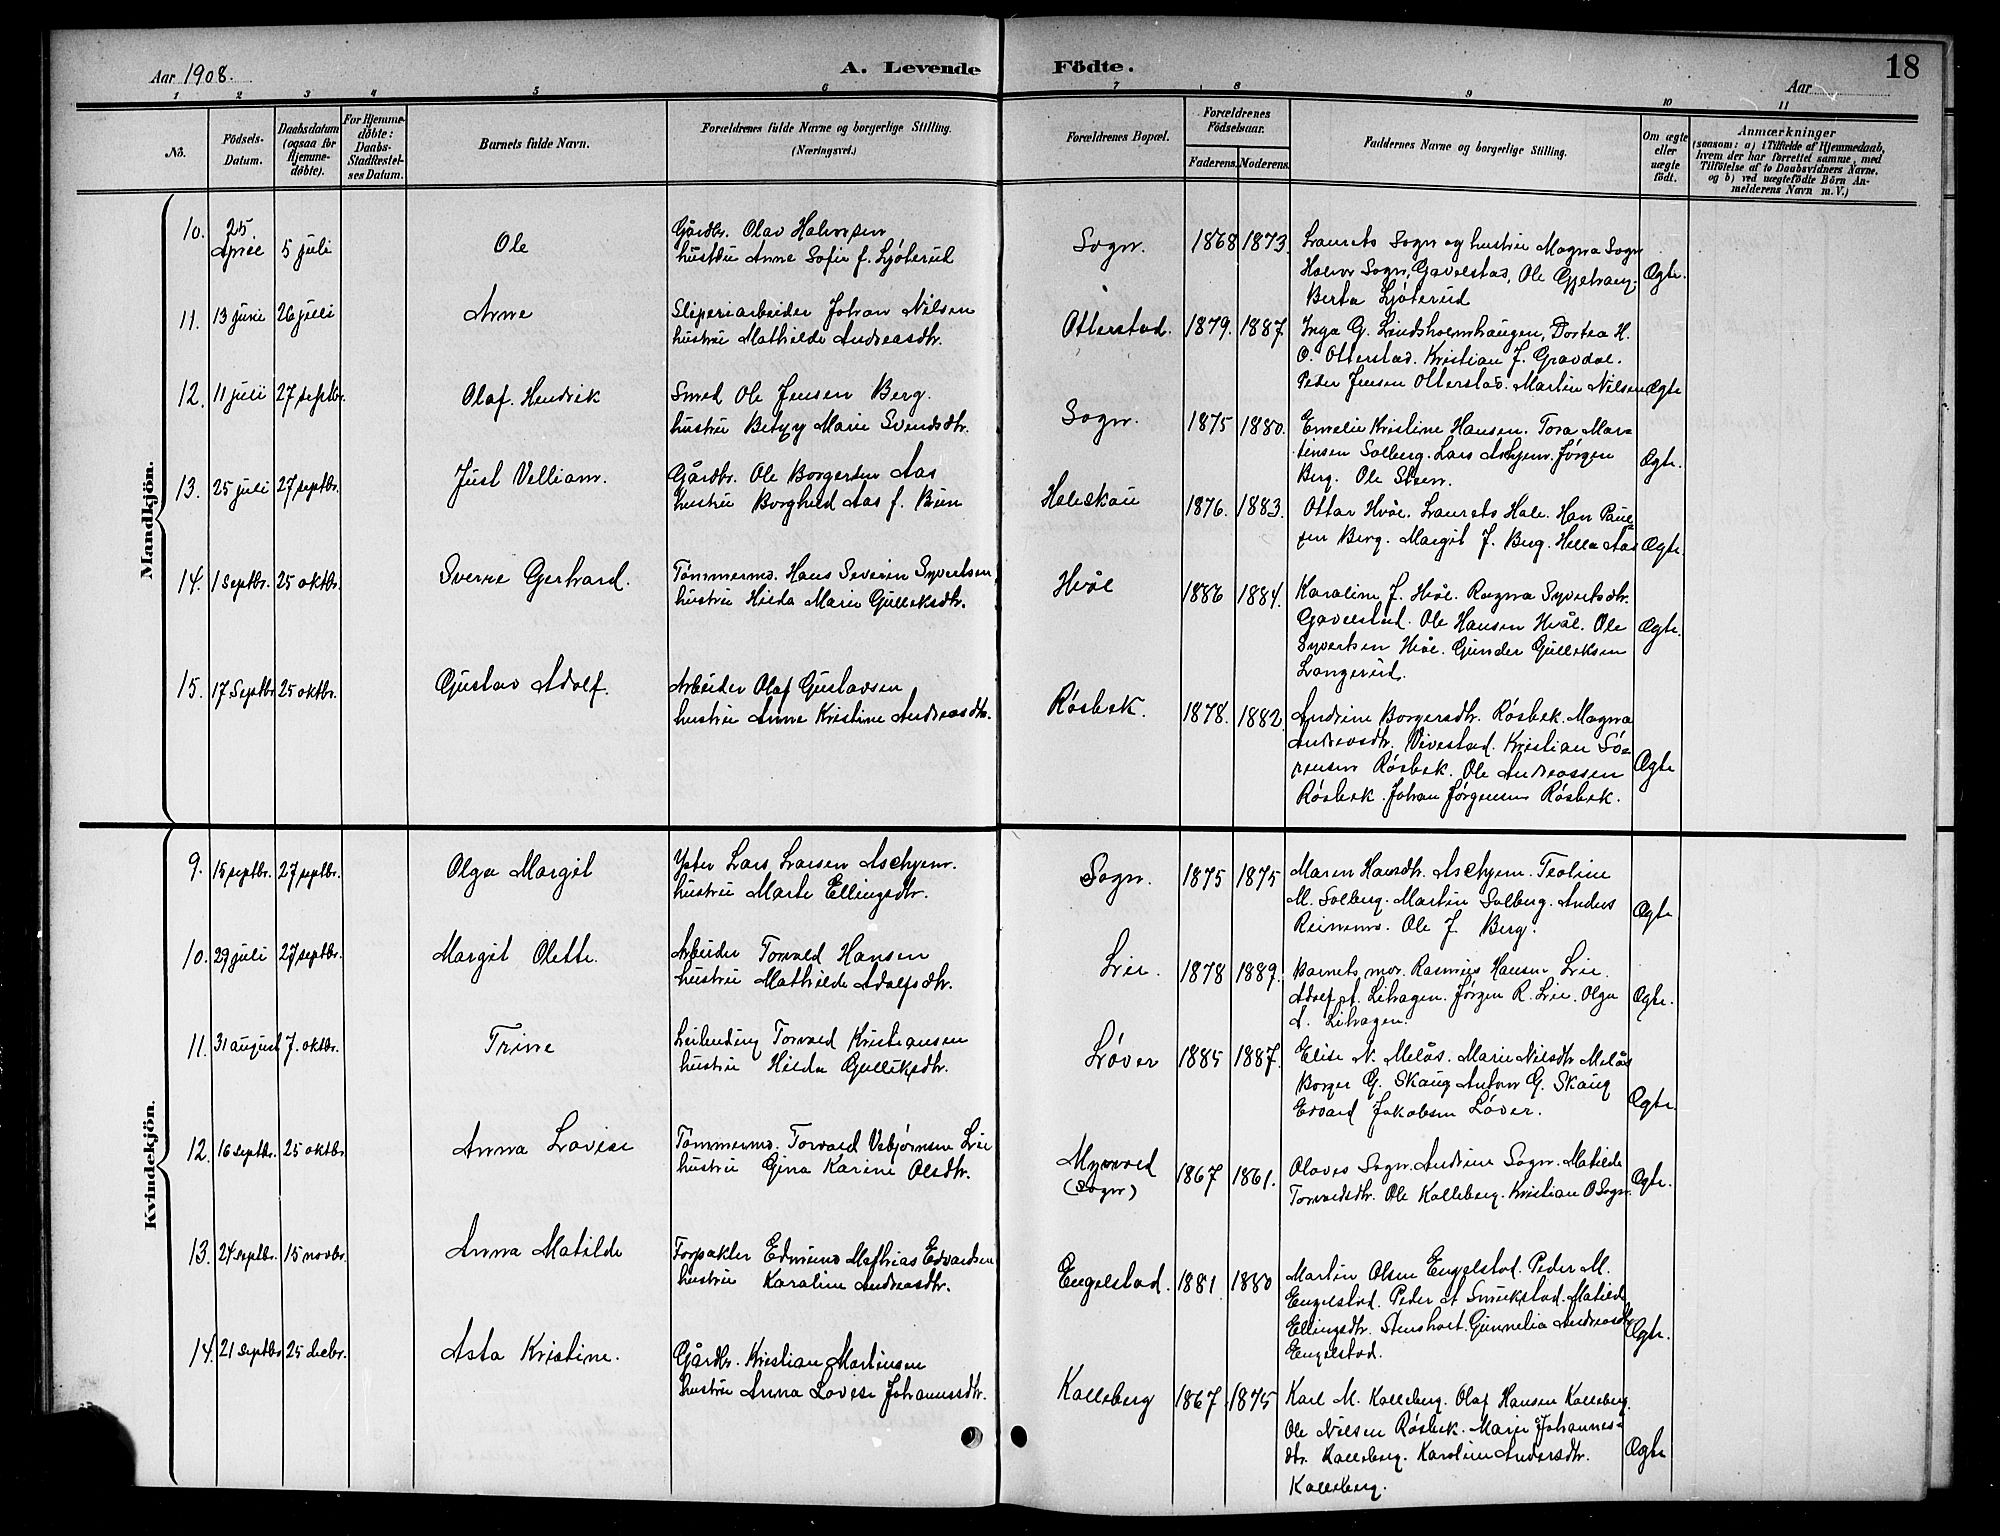 Aar 1908.
A. Levende Födte.
18
Aar
1 2 3 4 5 6 7 8 9 10 11
No.
Födsels-Datum.
Daabsdatum (ogsaa for Hjemmedøbte).
For Hjemmedøbte: Daabs-Stadfæstelses Datum.
Barnets fulde Navn.
Forældrenes fulde Navne og borgerlige Stilling. (Næringsvei.)
Forældrenes Bopæl.
Forældrenes Födselsaar.
Faderens. Moderens.
Faddernes Navne og borgerlige Stilling.
Om ægte eller uægte födt.
Anmærkninger
(saasom: a) i Tilfælde af Hjemmedaab, hvem der har forrettet samme, med Tilföielse af to Daabsvidners Navne, og b) ved uægtefödte Börn Anmelderens Navn m. V.)
Mandkjön.
10. 25. April 5 juli Ole
Gårdbr. Olav Halvorsen
hustru Anne Sofie f. Ljøterud
Sogn. 1868 1873.
Laurits Sogn og hustru Magna Sogn
Halvor Sogn, Gavelstad, Ole Gjetrang.
Berta Ljøterud
Ægte.
11. 13 juni 26 juli Arne
Sliperiarbeider Johan Nilsen
hustru Mathilde Andreasdtr.
Otterstad. 1879. 1887.
Inga G. Lindsholmhaugen, Dortea H.
O. Otterstad. Kristian J. Gravdal.
Peder Jensen Otterstad. Martin Nilsen
Ægte
12. 11 juli 27 septbr. Olaf. Hendrik
Smed Ole Jensen Berg.
hustru Betzy Marie Svendsdtr.
Sogn. 1875 1880.
Emelie Kristine Hansen. Tora Mar-
tinsen Solberg. Lars Askjem. Jørgen
Berg. Ole Steen.
Ægte.
13. 25 juli 27 septbr. Just Velliam.
Gårdbr. Ole Borgersen Aas
hustru Borghild Aas f. Bun
Haleskau 1876. 1883.
Ottar Hvål. Laurets Hale. Han Paul-
sen Berg. Margit J. Berg. Hella Aas
Ægte.
14. 1 septbr. 25 oktbr. Sverre Gerhard.
Tømmermd. Hans Severin Syvertsen
hustru Hilda Marie Gulleksdtr.
Hvål 1886 1884.
Karaline J. Hvål. Ragna Syvertsdtr.
Gavelstad. Ole Hansen Hvål. Ole
Syvertsen Hvål. Gunder Gulleksen
Langerud.
Ægte.
15. 17 Septbr 25 oktbr. Gustav Adolf.
Arbeider Olaf Gustavsen
hustru Anne Kristine Andreasdtr.
Røsbek. 1878. 1882.
Andrine Borgersdtr. Røsbek. Magna
Andreasdtr. Vivestad. Kristian Sø-
rensen Røsbek. Ole Andreassen
Røsbek. Johan Jørgensen Røsbek.
Ægte
Kvindekjön.
9. 15 septbr. 27 septbr. Olga Margit
Yster Lars Larsen Askjem.
hustru Marte Ellingsdtr.
Sogn. 1875 1875
Maren Hansdtr. Askjem. Teoline
M. Solberg. Martin Solberg. Anders
Ole J Berg.
Ægte.
10. 29 juli 27 septbr. Margit Olette.
Arbeider Torvald Hansen
hustru Mathilde Adolfsdtr.
Lie. 1878 1889.
Barnets mor. Rasmus Hansen Lie.
Adolf A. Lihagen. Jørgen R. Lie. Olga
A. Lihagen.
Ægte.
11. 31 august 7. oktbr. Trine
Leilending Torvald Kristiansen
hustru Hilda Gulliksdtr.
Løver 1885 1887.
Elise N. Melås. Marie Nilsdtr Melås
Borger G. Skaug Anton G. Skaug
Edvard Jakobsen Løver.
Ægte.
12. 16 septbr. 25 oktbr Anna Lovise
Tømmermd. Torvald Vebjørnsen Lie
hustru Gina Karine Olsdtr.
Myrvold (Sogn) 1867 1861.
Olaves Sogn. Andrine Sogn. Matilde
Torvaldsdtr. Ole Kalleberg. Kristian O Sogn.
Ægte.
13. 24 septbr. 15 novbr. Anna Matilde
Forpakter Edmund Mathias Edvardsen
hustru Karaline Andreasdtr.
Engelstad. 1881. 1880
Martin Olsen Engelstad. Peder M.
Engelstad. Peder A Smukstad. Matilde
Ellingsdtr. Stensholt. Gunnelia Andreasdtr
Engelstad.
Ægte.
14. 21 septbr 25 decbr. Asta Kristine.
Gårdbr. Kristian Martinsen
hustru Anna Lovise Johannsdtr.
Kalleberg 1867. 1875
Karl M. Kalleberg. Olaf Hansen Kalleberg.
Ole Nilsen Røsbek. Marie Johannes-
dtr. Kalleberg. Karoline Andersdtr.
Kalleberg.
Ægte